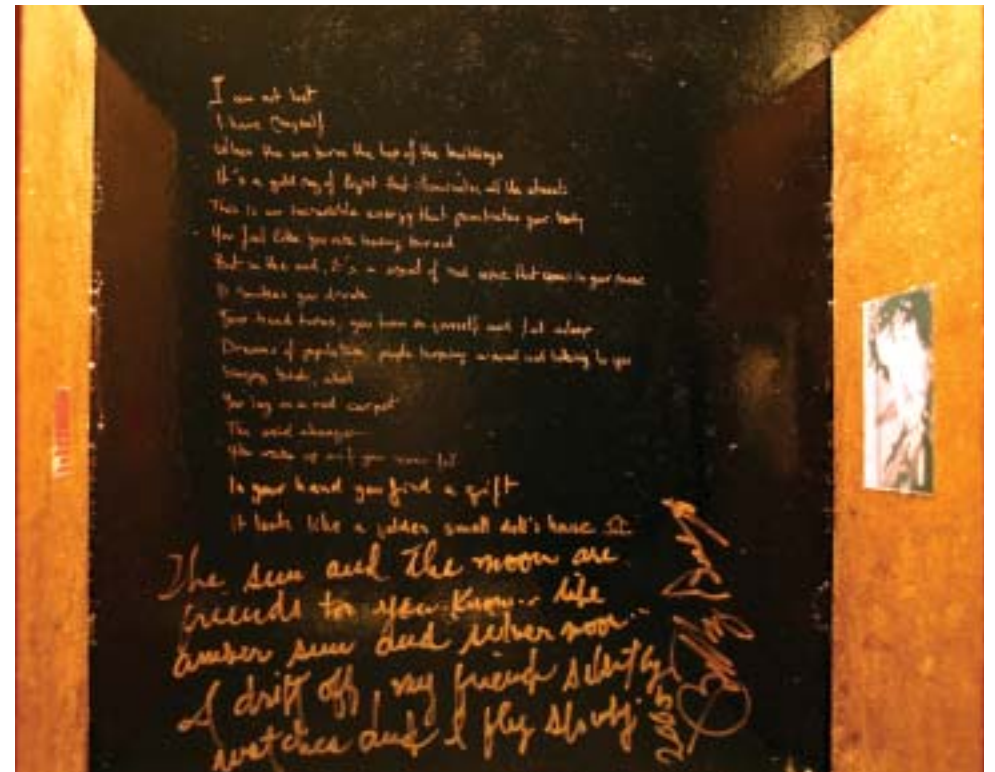 I am not lost
I have myself
When the sun burns the top of the buildings
It's a gold ray of light that illuminates all the streets
This is an incredible energy that penetrates your body
You feel like you are being burned
But in the end, it's a sound of that comes in your
It makes you
Your head turns, you turn on yourself and fall asleep
Dreams of people and talking to you
You lay on a red carpet
The wind changes
You wake up and you
In your hand you find a gift
It looks like a golden small doll's house
The sun and the moon are
friends to you know.. the
amber sun and silver moon..
I drift off, my friend silently
watches and I fly slowly.
2005